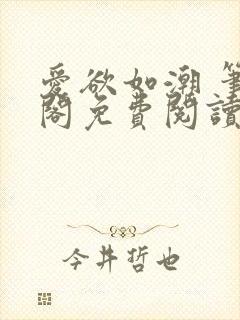 愛欲如潮 筆
閣免費閱讀
今井哲也